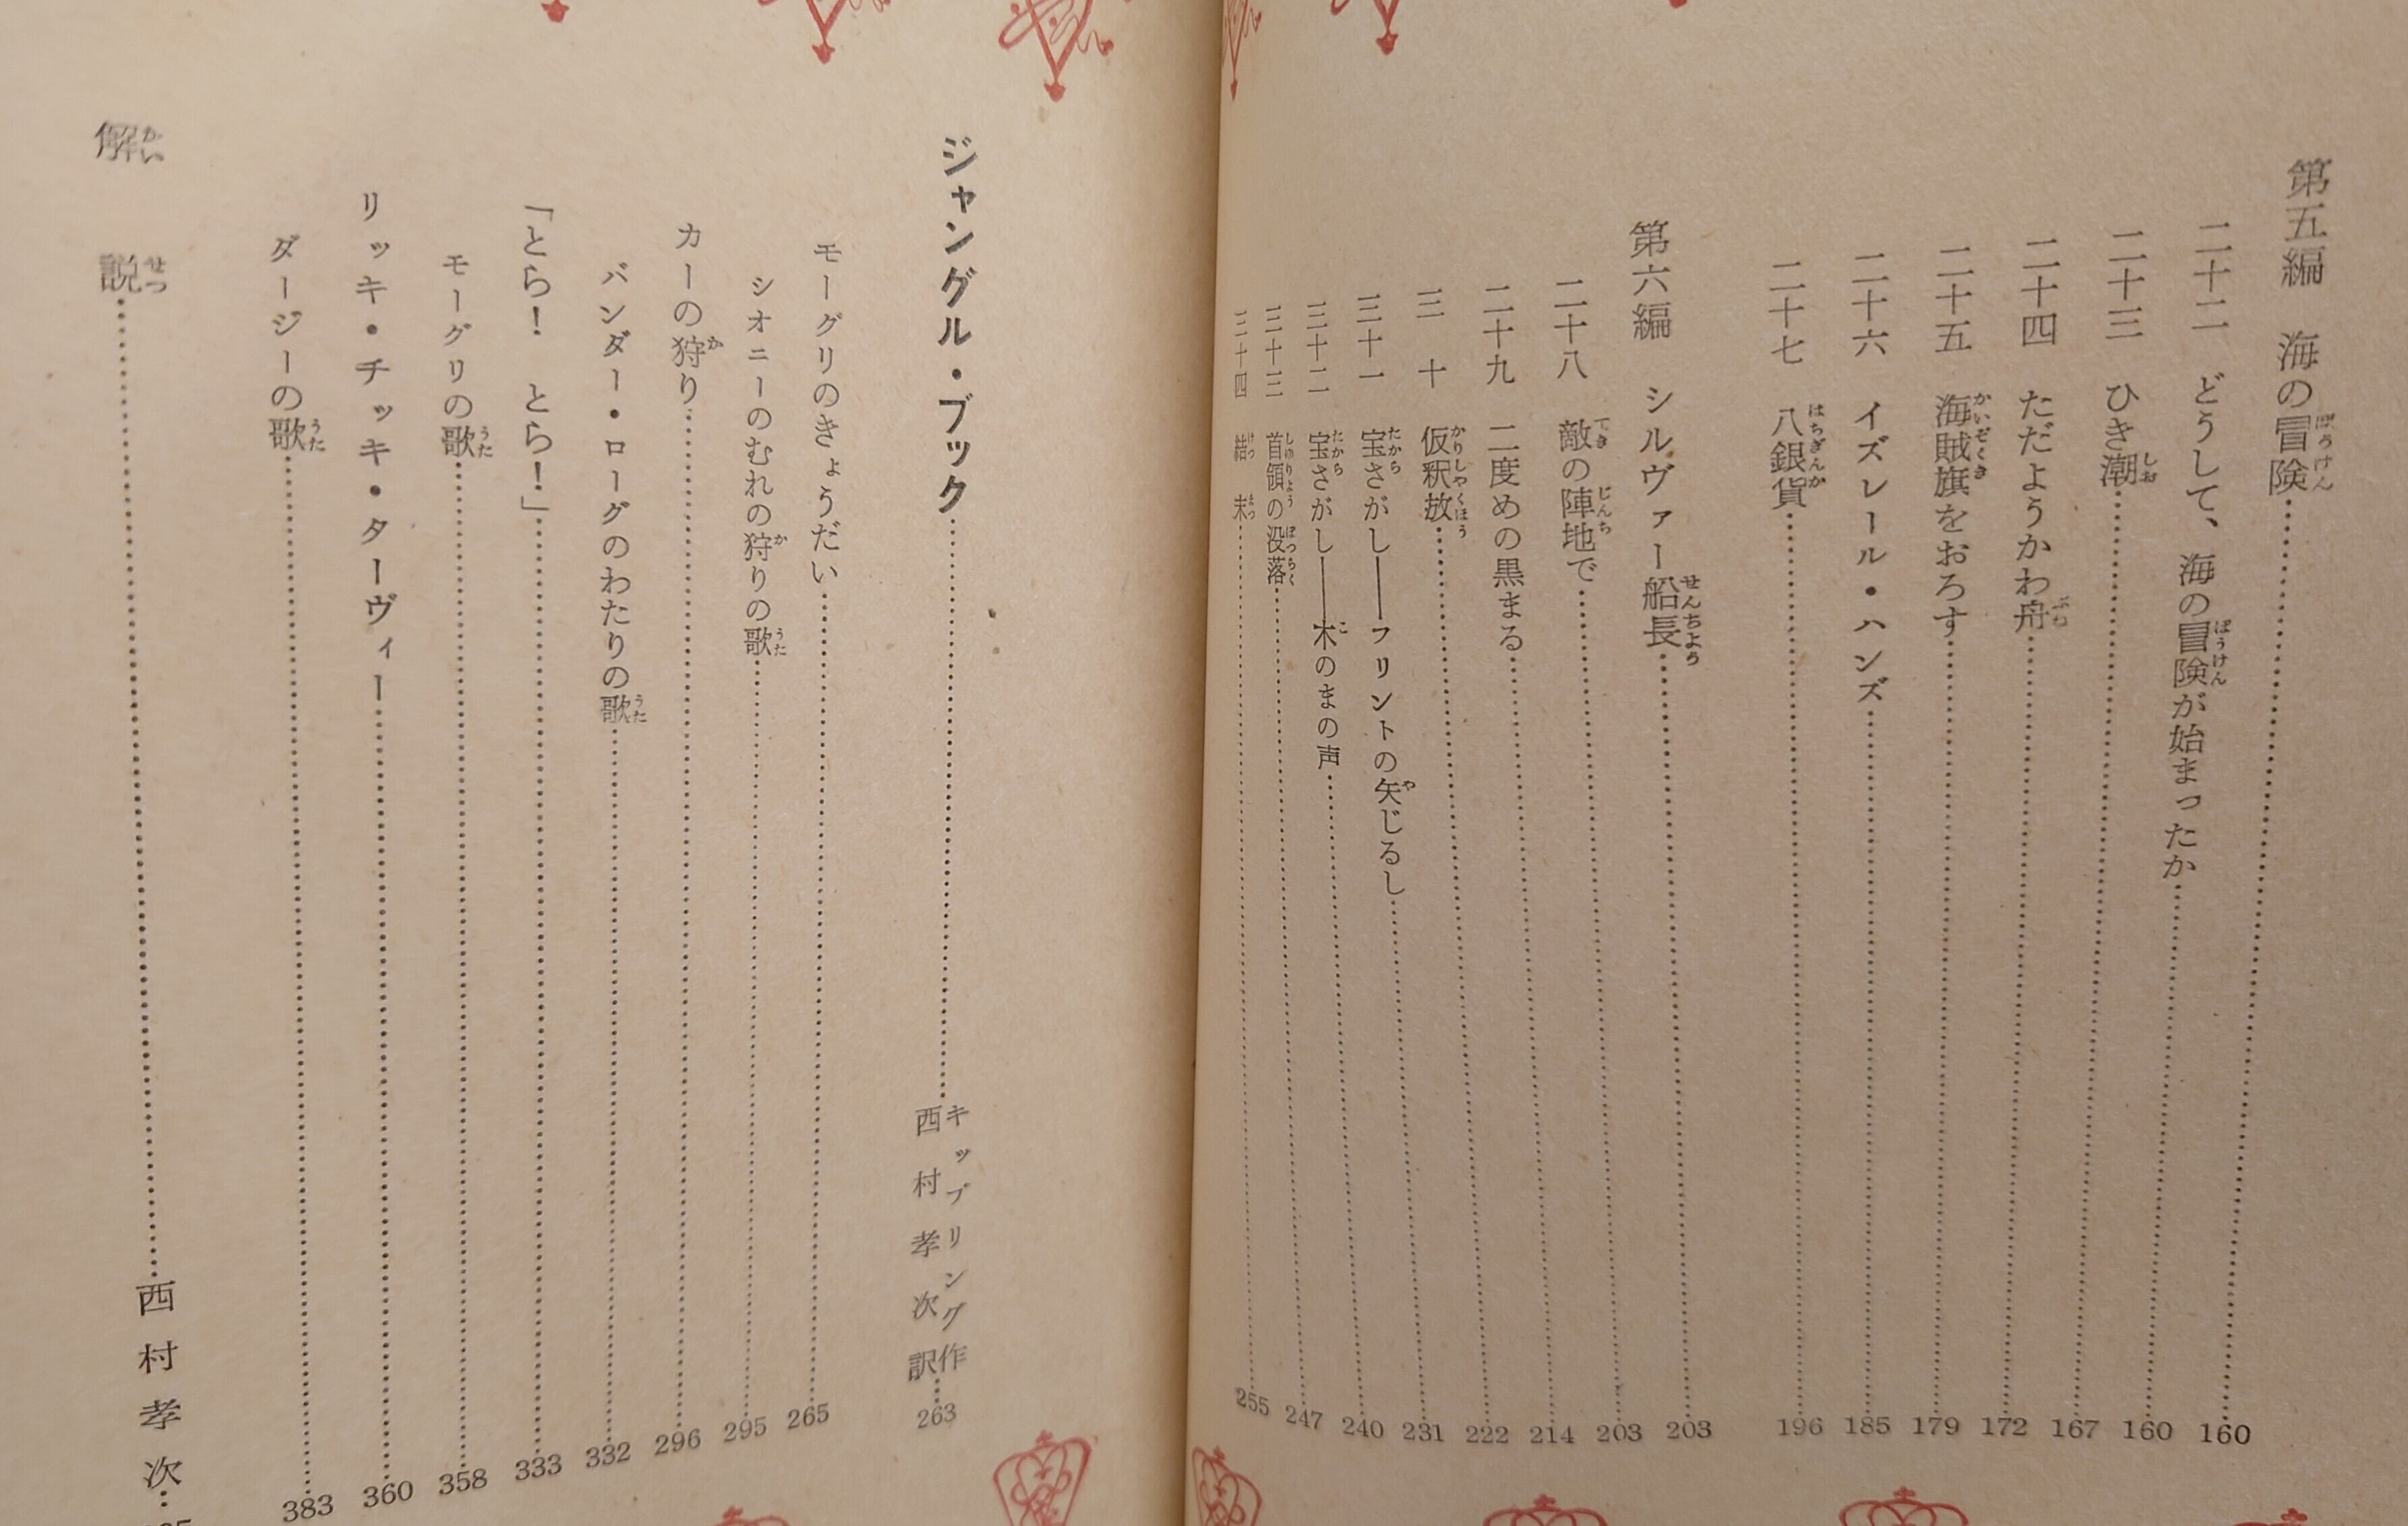 第五編 海の冒険 160
二十二 どうして、海の冒険が始まったか 160
二十三 ひき潮 167
二十四 ただようかわ舟 172
二十五 海賊旗をおろす 179
二十六 イズレール・ハンズ 185
二十七 八銀貨 196
第六編 シルヴァー船長 203
二十八 敵の陣地で 203
二十九 二度めの黒まる 214
三十 仮釈放 222
三十一 宝さがし――フリントの矢じるし 231
三十二 宝さがし――木のまの声 240
三十三 首領の没落 247
三十四 結末 255
ジャングル・ブック キップリング作 西村孝次訳 263
モーグリのきょうだい 265
シオニーのむれの狩りの歌 295
カーの狩り 296
バンダー・ローグのわたりの歌 332
「とら! とら!」 333
モーグリの歌 358
リッキ・チッキ・ターヴィー 360
ダージーの歌 383
解説 西村孝次